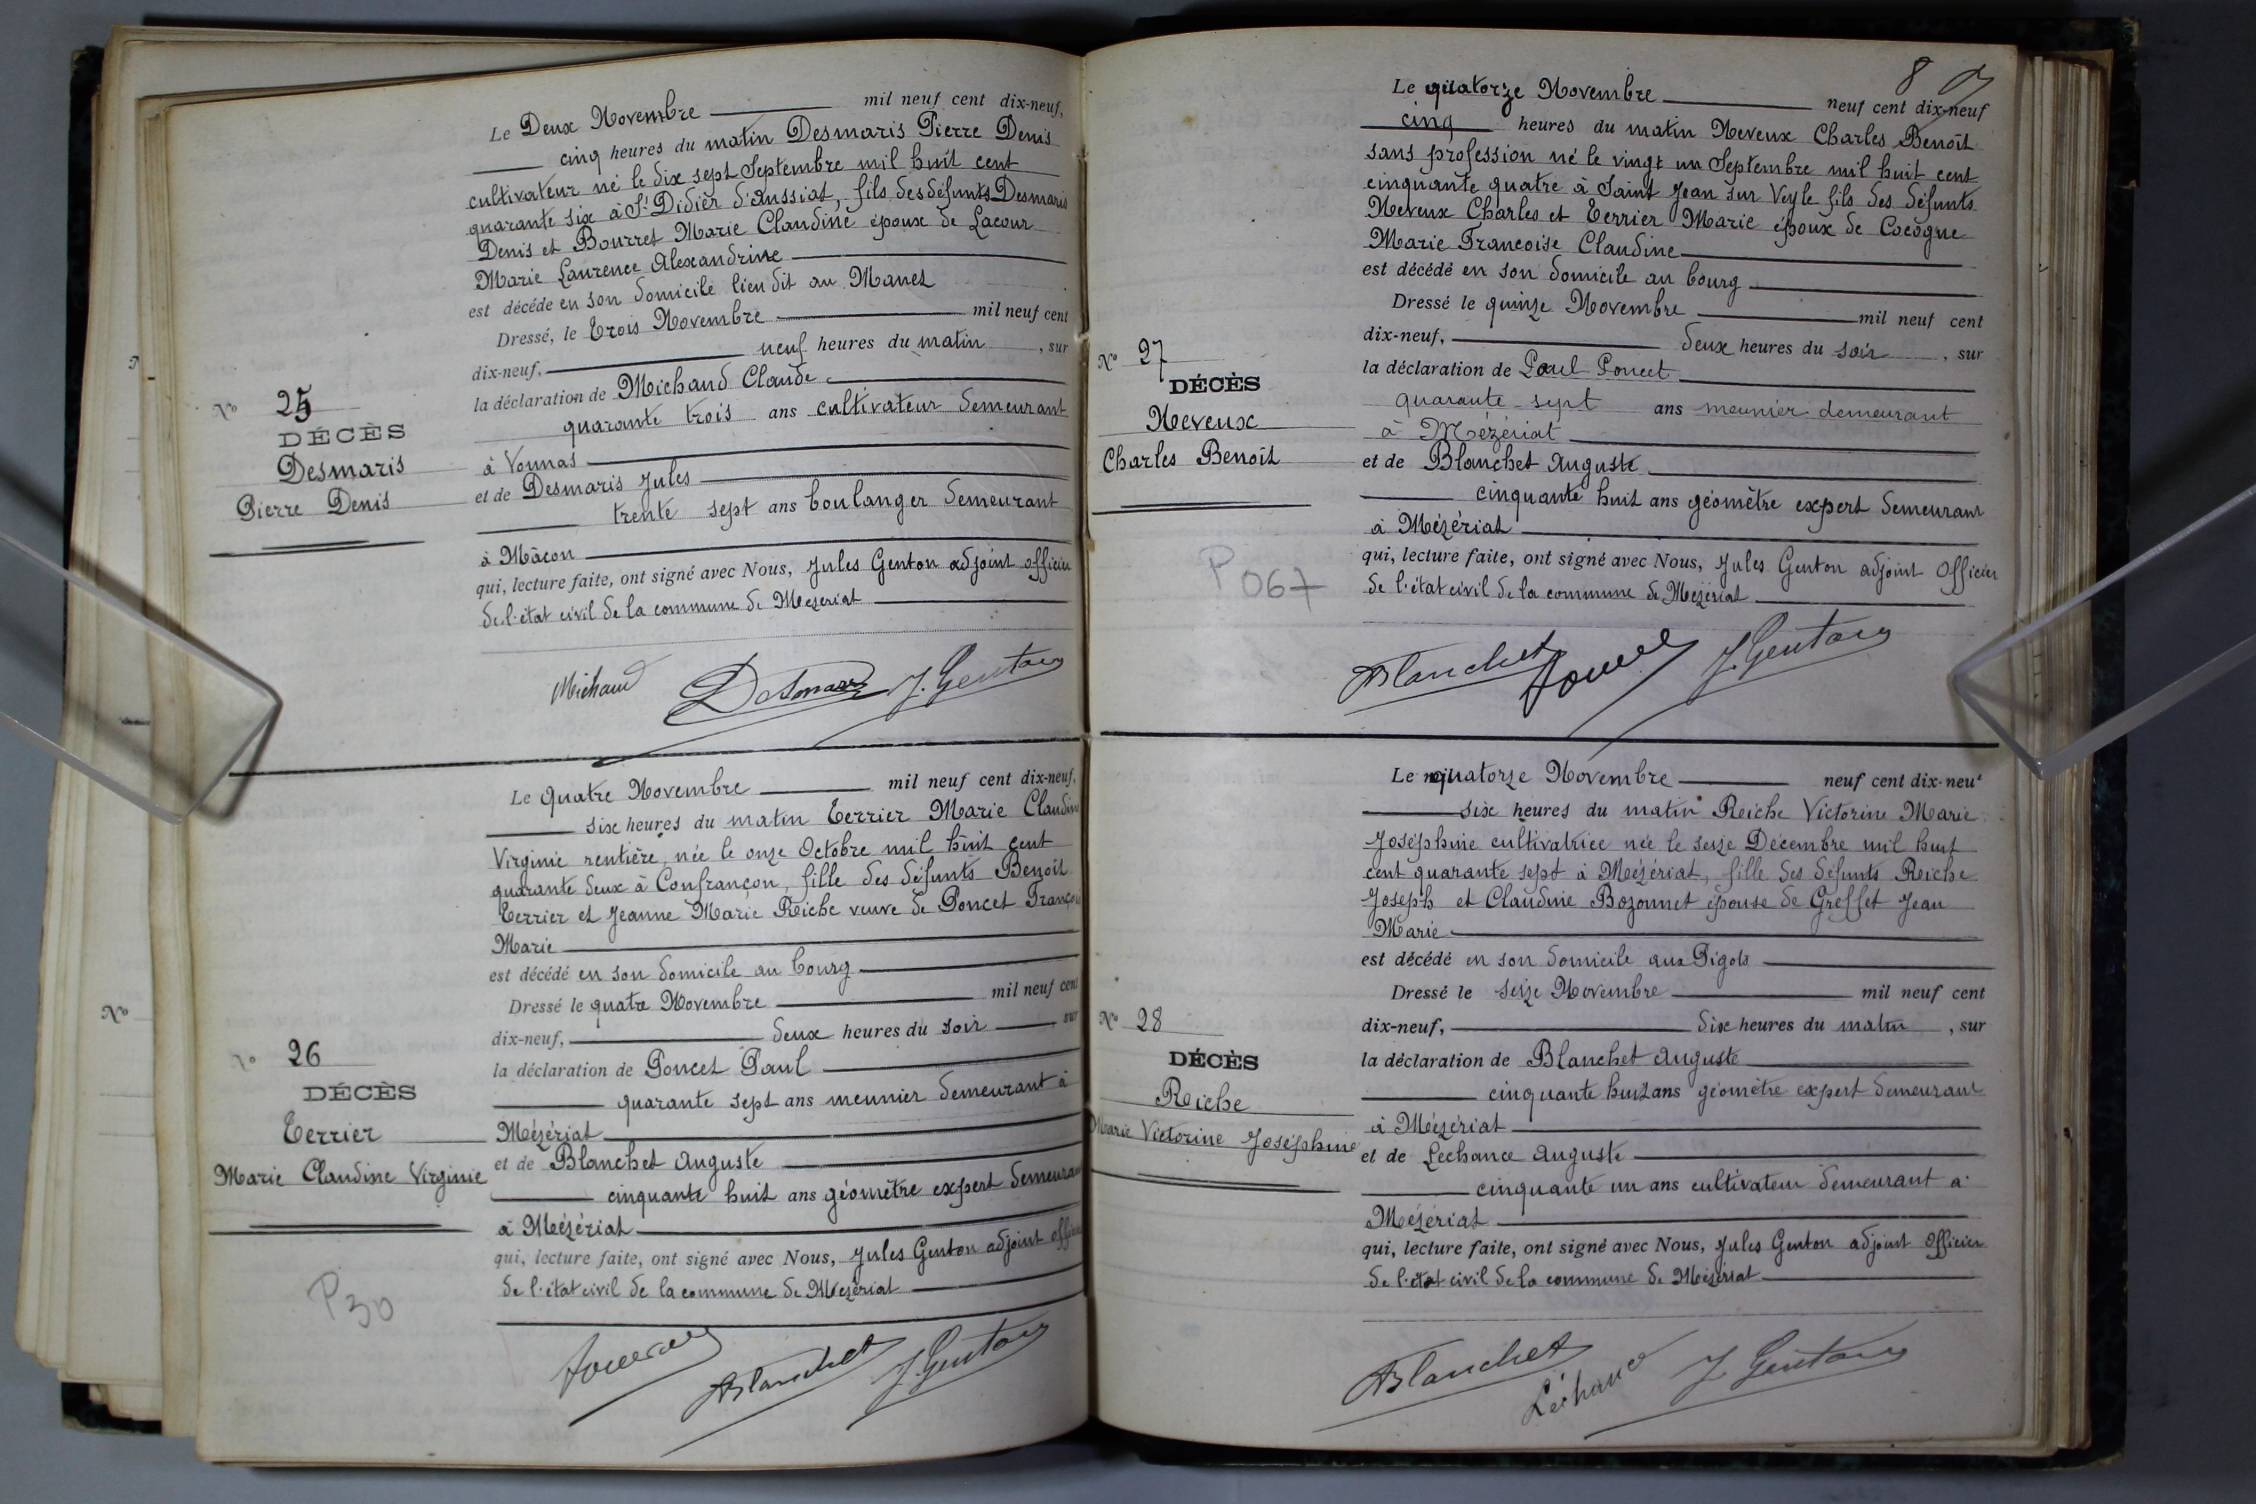 Le Deux Novembre mil neuf cent dix-neuf,
cinq heures du matin Desmaris Pierre Denis
cultivateur né le dix sept Septembre mil huit cent
quarante six à St Didier d'Aussiat, fils des défunts Desmaris
Denis et Bourret Marie Claudine époux de Lacour
Marie Laurence Alexandrine
est décédé en son domicile lieu dit au Manet
Dressé, le Trois Novembre mil neuf cent
dix-neuf, neuf heures du matin, sur
la déclaration de Michaud Claude
quarante trois ans cultivateur demeurant
à Vonnas
et de Desmaris Jules
trente sept ans boulanger demeurant
à Mâcon
qui, lecture faite, ont signé avec Nous, Jules Genton adjoint officier
de l'état civil de la commune de Mézériat
No 25
DÉCÈS
Desmaris
Pierre Denis
Michaud Desmaris J. Genton
Le Quatre Novembre mil neuf cent dix-neuf,
six heures du matin Terrier Marie Claudine
Virginie rentière, née le onze Octobre mil huit cent
quarante deux à Confrançon, fille des défunts Benoît
Terrier et Jeanne Marie Reiche veuve de Poncet François
Marie
est décédé en son domicile au bourg
Dressé le quatre Novembre mil neuf cent
dix-neuf, deux heures du soir, sur
la déclaration de Poncet Paul
quarante sept ans meunier demeurant à
Mézériat
et de Blanchet Auguste
cinquante huit ans géomètre expert demeurant
à Mézériat
qui, lecture faite, ont signé avec Nous, Jules Genton adjoint officier
de l'état civil de la commune de Mézériat
No 26
DÉCÈS
Terrier
Marie Claudine Virginie
P30
Poncet Blanchet J. Genton
No
8
Le quatorze Novembre neuf cent dix-neuf
cinq heures du matin Neveux Charles Benoît
sans profession né le vingt un Septembre mil huit cent
cinquante quatre à Saint Jean sur Veyle fils des défunts
Neveux Charles et Terrier Marie époux de Cocogne
Marie Francoise Claudine
est décédé en son domicile au bourg
Dressé le quinze Novembre mil neuf cent
dix-neuf, deux heures du soir, sur
la déclaration de Paul Poncet
quarante sept ans meunier demeurant
à Mézériat
et de Blanchet Auguste
cinquante huit ans géomètre expert demeurant
à Mézériat
qui, lecture faite, ont signé avec Nous, Jules Genton adjoint Officier
de l'état civil de la commune de Mézériat
No 27
DÉCÈS
Neveux
Charles Benoît
P067
Blanchet Poncet J. Genton
Le quatorze Novembre neuf cent dix-neuf
six heures du matin Reiche Victorine Marie
Joséphine cultivatrice née le seize Décembre mil huit
cent quarante sept à Mézériat, fille des défunts Reiche
Joseph et Claudine Bozonnet épouse de Greffet Jean
Marie
est décédé en son domicile aux Pigots
Dressé le seize Novembre mil neuf cent
dix-neuf, dix heures du matin, sur
la déclaration de Blanchet Auguste
cinquante huit ans géomètre expert demeurant
à Mézériat
et de Lechance Auguste
cinquante un ans cultivateur demeurant à
Mézériat
qui, lecture faite, ont signé avec Nous, Jules Genton adjoint Officier
de l'état civil de la commune de Mézériat
No 28
DÉCÈS
Reiche
Marie Victorine Joséphine
Blanchet Léchance J. Genton